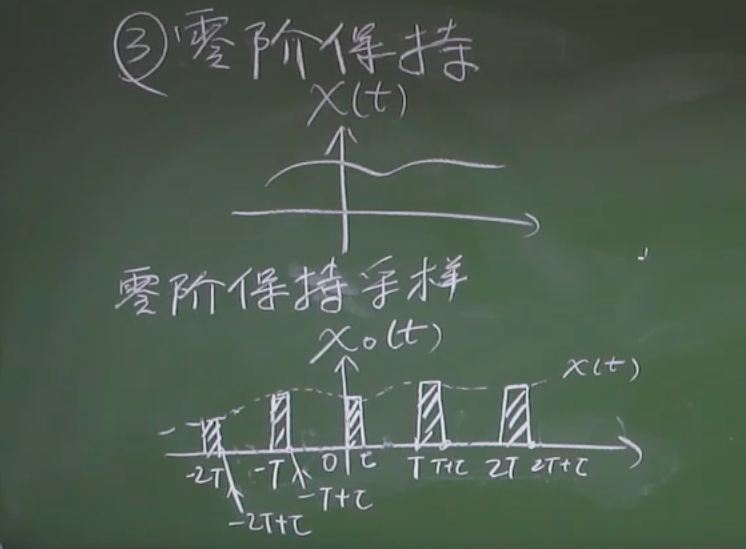 ③零阶保持
x(t)
零阶保持采样
x₀(t)
x(t)
-2T -T 0 τ T T+τ 2T 2T+τ
-2T+τ -T+τ